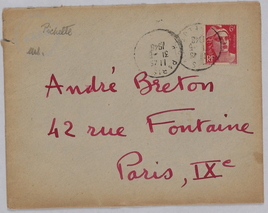 Pichette
André Breton
42 rue Fontaine
Paris, IXe